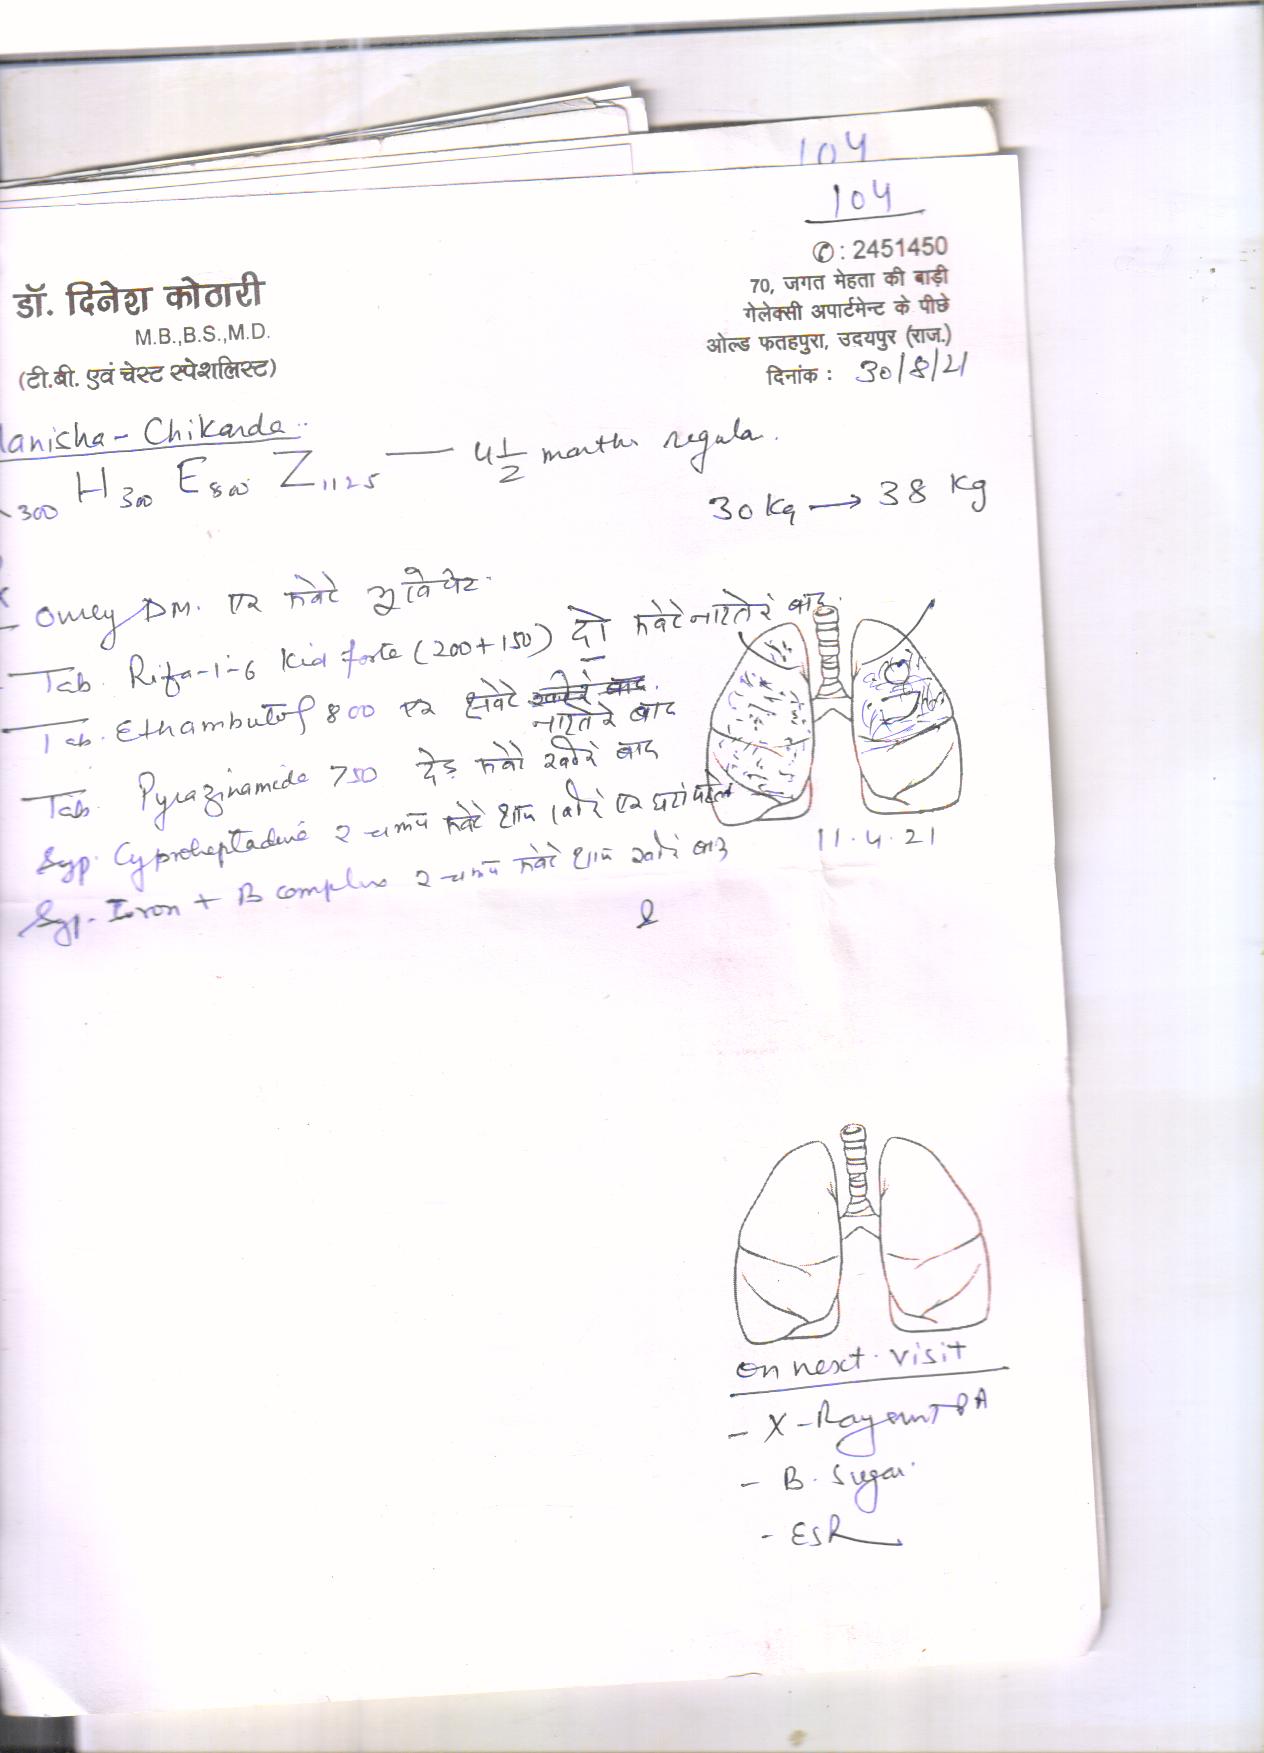 104
104
✆: 2451450
70, जगत मेहता की बाड़ी
गेलेक्सी अपार्टमेन्ट के पीछे
ओल्ड फतहपुरा, उदयपुर (राज.)
दिनांक : 30/8/21
डॉ. दिनेश कोठारी
M.B.,B.S.,M.D.
(टी.बी. एवं चेस्ट स्पेशलिस्ट)
anisha - Chikarda
300 H300 E800 Z1125 — 4 1/2 months regula.
30 Kg → 38 Kg
Omey DM. एक सवेरे
Tab. Rifa-i-6 Kid forte (200+150) दो सवेरे नाश्ते के बाद.
Tab. Ethambutol 800 एक सवेरे
नाश्ते के बाद
Tab. Pyrazinamide 750 डेढ़ सवेरे खाने के बाद
Syp. Cyproheptadine 2 चम्मच सवेरे शाम खाने के एक घंटा पहले
Syp. Iron + B complex 2 चम्मच सवेरे शाम खाने के बाद
11.4.21
on next visit
- X-Ray PA
- B. Sugar
- ESR